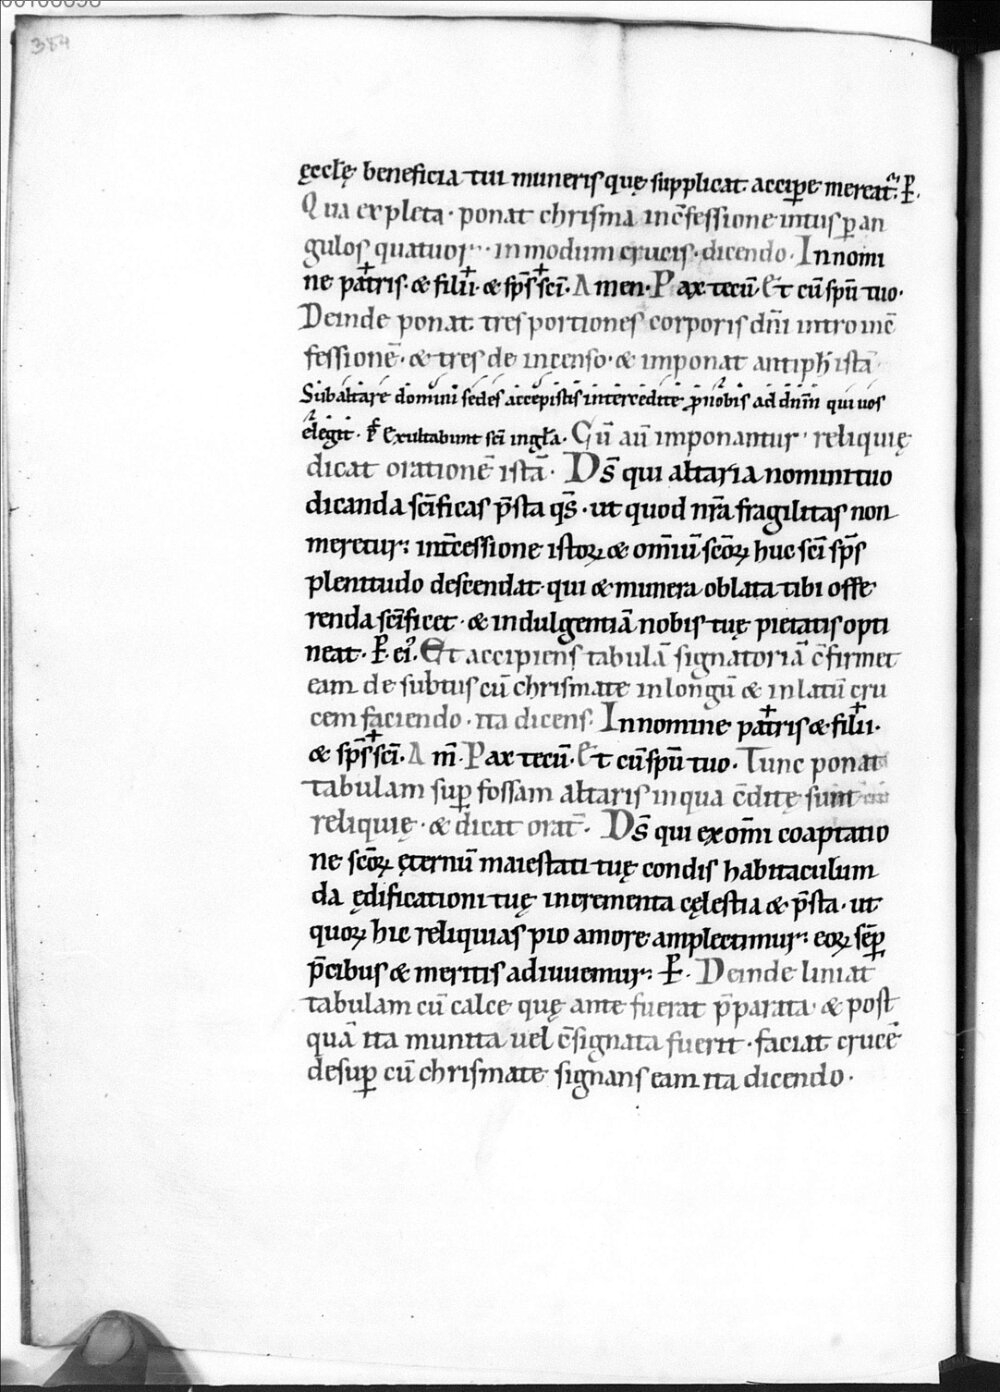 384
ęcclę beneficia tui muneris quę supplicat accipe mereat᷑. P̲.
Qua expleta · ponat chrisma in c̄fessione intus ꝑ an
gulos quatuor · in modum crucis · dicendo · In nomi
ne pat̄ris · & filii · & sp̄s sc̄i · Amen · Pax tecū · Et cū sp̄u tuo ·
Deinde ponat tres portiones corporis dn̄i intro in c̄
fessionē · & tres de incenso · & imponat antiph̄ istā
Sub altare domini sedes accepistis intercedite ꝓ nobis ad dn̄m qui uos
elegit · Exultabunt sc̄i in gl̄a · Cū aū imponantur reliquię
dicat orationē istā · Ds̄ qui altaria nomini tuo
dicanda sc̄ificas p̄sta qs̄ · ut quod nr̄a fragilitas non
meretur: int̄cessione istoꝝ & omīū sc̄oꝝ huc sc̄i sp̄s
plenitudo descendat · qui & munera oblata tibi offe
renda sc̄ificet · & indulgentiā nobis tuę pietatis opti
neat · P̲. ei᾿. Et accipiens tabulā signatoriā c̄firmet
eam de subtus cū chrismate in longū & in latū cru
cem faciendo · ita dicens · In nomine pat̄ris & filii ·
& sp̄s sc̄i · Am̄ · Pax tecū · Et cū sp̄u tuo · Tunc ponat
tabulam suꝑ fossam altaris in qua c̄ditę sunt
reliquię · & dicat orat̄ · Ds̄ qui ex om̄i coaptatio
ne sc̄oꝝ ęternū maiestati tuę condis habitaculum
da ędificationi tuę incrementa cęlestia & p̄sta · ut
quoꝝ hic reliquias pio amore amplectimur: eoꝝ sēꝑ
p̄cibus & meritis adiuuemur: P̲. Deinde liniat
tabulam cū calce quę ante fuerat p̄parata & post
quā ita munita uel c̄signata fuerit · faciat crucē
desuꝑ cū chrismate signans eam ita dicendo ·